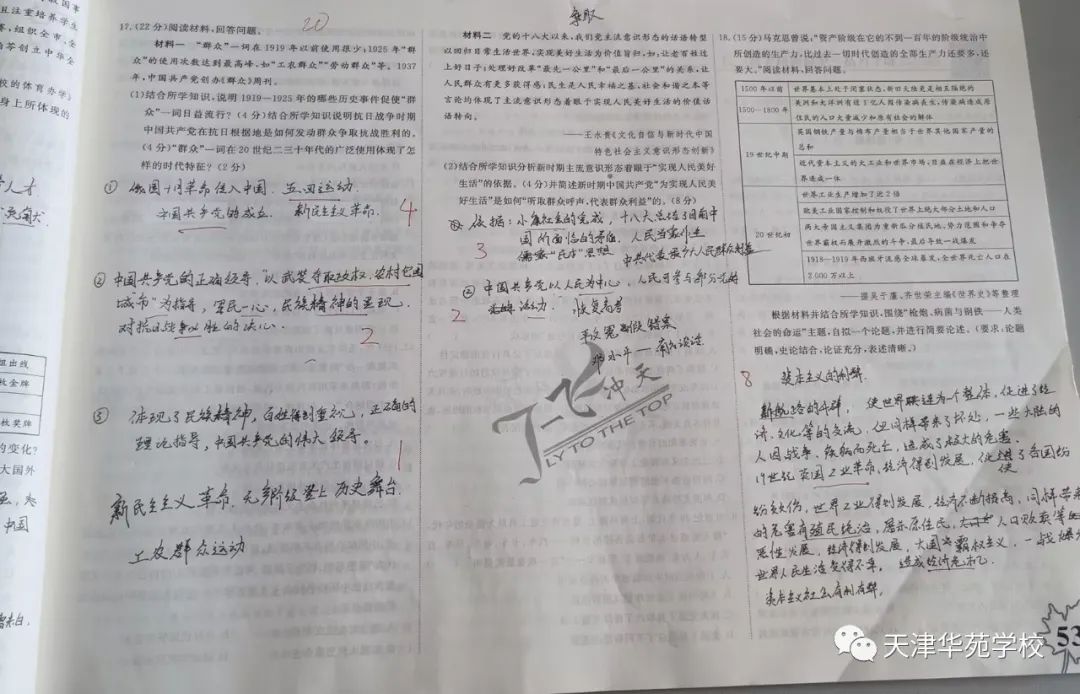 且注重培养学生
组织全市、全
创立中华全
校的体育办学
身上所体现的
组出线
枚金牌
枚奖牌
的变化?
大国外
中国
17.(22分)阅读材料,回答问题。
20
材料一 “群众”一词在1919年以前使用很少;1925年“群
众”的使用次数达到最高峰,如“工农群众”“劳动群众”等。1937
年,中国共产党创办《群众》周刊。
(1)结合所学知识,说明1919—1925年的哪些历史事件促使“群
众”一词日益流行?(4分)结合所学知识说明抗日战争时期
中国共产党在抗日根据地是如何发动群众争取抗战胜利的。
(4分)“群众”一词在20世纪二三十年代的广泛使用体现了怎
样的时代特征?(2分)
① 俄国十月革命传入中国. 五四运动.
中国共产党的成立. 新民主主义革命. 4
② 中国共产党的正确领导,“以武装夺取政权,农村包围
城市”为指导,军民一心,民族精神的显现.
对抗日战争必胜的决心.
2
③ 体现了民族精神,百姓得到重视,正确的
理论指导,中国共产党的伟大领导。
1
新民主主义革命. 无产阶级登上历史舞台.
工农群众运动
材料二 党的十八大以来,我们党主流意识形态的话语转型
以回归日常生活世界、实现美好生活为价值旨归,如,让老百姓过
上好日子;处理好改革“最先一公里”和“最后一公里”的关系,让
人民群众有更多获得感;民生是人民幸福之基、社会和谐之本等
言论均体现了主流意识形态着眼于实现人民美好生活的价值话
语转向。
——王永贵《文化自信与新时代中国
特色社会主义意识形态创新》
(2)结合所学知识分析新时期主流意识形态着眼于“实现人民美好
生活”的依据。(4分)并简述新时期中国共产党“为实现人民美
好生活”是如何“听取群众呼声,代表群众利益”的。(8分)
依据:小康社会的完成,十八大总结了目前中
国所面临的矛盾. 人民当家作主
3 儒家“民本”思想 中共代表最广大人民群众利益
② 中国共产党以人民为中心,人民可参与部分
2 活动. 恢复高考
平反冤假错案
邓小平—南方谈话
一飞冲天
FLY TO THE TOP
18.(15分)马克思曾说,“资产阶级在它的不到一百年的阶级统治中
所创造的生产力,比过去一切时代创造的全部生产力还要多,还
要大。”阅读材料,回答问题。
1500年以前 世界基本上处于闭塞状态,新旧大陆更是相互隔绝的
1500—1800年 美洲和大洋洲有近1亿人因传染病丧生,传染病造成原
住民的人口大量减少和原有社会的解体
19世纪中期 英国钢铁产量与棉布产量相当于世界其他国家产量的
总和
近代资本主义的大工业和世界市场,日益在经济上把世
界连成一体
20世纪初 世界工业生产增加了近2倍
欧美工业国家控制和奴役了世界上绝大部分土地和人口
两大帝国主义集团为重新瓜分殖民地、势力范围和争夺
世界霸权而展开激烈的斗争,最后导致一战爆发
1918—1919年西班牙流感全球暴发,全世界死亡人口在
2 000万以上
——据吴于廑、齐世荣主编《世界史》等整理
根据材料并结合所学知识,围绕“枪炮、病菌与钢铁——人类
社会的命运”主题,自拟一个论题,并进行简要论述。(要求:论题
明确,史论结合,论证充分,表述清晰。)
8 资本主义的利弊.
新航路的开辟,使世界联连为一个整体,促进了经
济、文化等的交流,但同样带来了坏处,一些大陆的
人因战争、疾病而死亡,造成了极大的危害。
19世纪英国工业革命,经济得到发展,促进了各国纷
纷效仿,世界工业得到发展,经济不断提高,同样带来
的危害有殖民统治,屠杀原住民,人口贩卖等
恶性发展,经济得到发展,大国霸权主义,一战爆发
世界人民生活变得不幸,造成经济危机.
资本主义社会有利有弊.
天津华苑学校
53